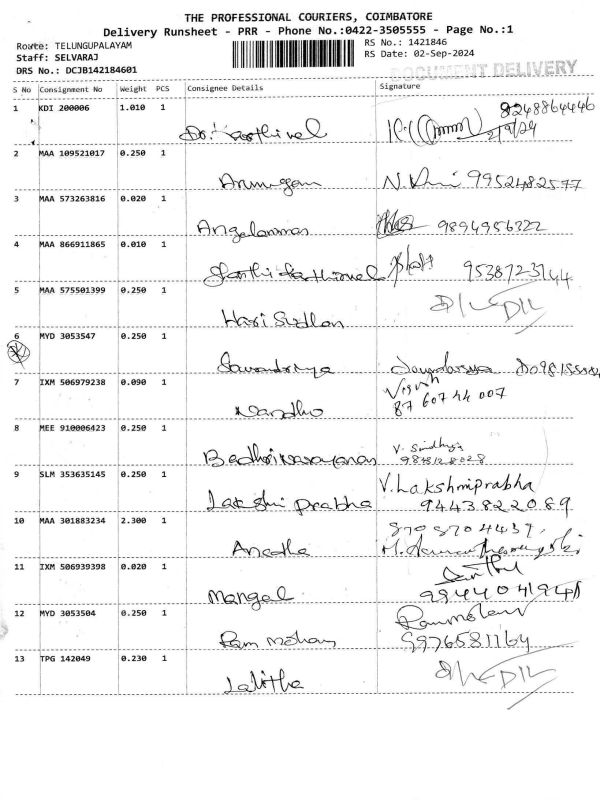 THE PROFESSIONAL COURIERS, COIMBATORE
Delivery Runsheet - PRR - Phone No.:0422-3505555 - Page No.:1
Route: TELUNGUPALAYAM RS No.: 1421846
Staff: SELVARAJ RS Date: 02-Sep-2024
DRS No.: DCJB142184601 DOCUMENT DELIVERY
S No Consignment No Weight PCS Consignee Details Signature
1 KDI 200006 1.010 1 8248864446
Dr. 2/9/24
2 MAA 109521017 0.250 1
Arumugam 9952482577
3 MAA 573263816 0.020 1
Angalamman 9894956322
4 MAA 866911865 0.010 1
9538723144
5 MAA 575501399 0.250 1
Hari Sudhan
6 MYD 3053547 0.250 1
7 IXM 506979238 0.090 1
Nandhu 87 607 44 007
8 MEE 910006423 0.250 1
Badhrinarayanan V. Sindhuja
9 SLM 353635145 0.250 1
Lakshmi Prabha V. Lakshmiprabha
9443822089
10 MAA 301883234 2.300 1 8708704437
11 IXM 506939398 0.020 1
Mangal 9944041941
12 MYD 3053504 0.250 1
Ram Mohan 9976581164
13 TPG 142049 0.230 1
Lalitha